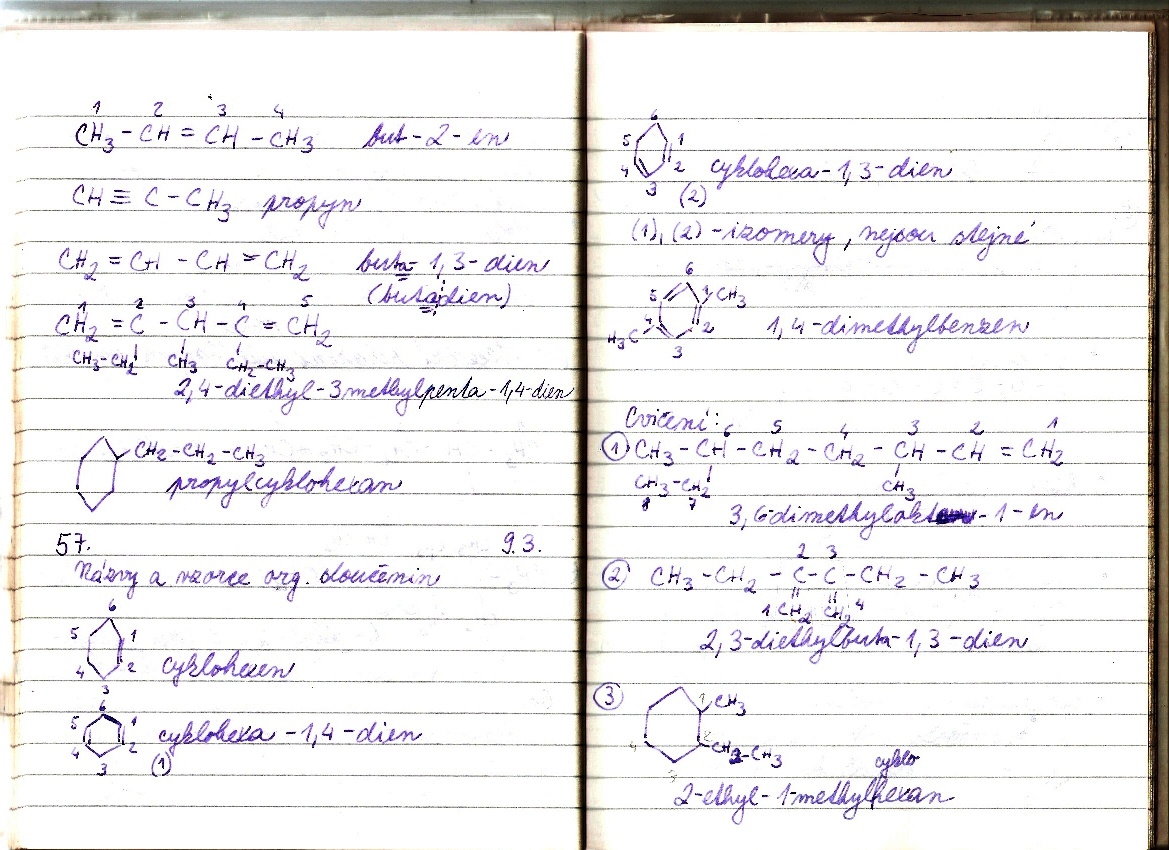 1 2 3 4
CH3 - CH = CH - CH3 but-2-en
CH ≡ C - CH3 propyn
CH2 = CH - CH = CH2 buta-1,3-dien
(butadien)
1 2 3 4 5
CH2 = C - CH - C = CH2
CH3-CH2 CH3 CH2-CH3
2,4-diethyl-3methylpenta-1,4-dien
CH2-CH2-CH3
propylcyklohexan
57. 9.3.
Názvy a vzorce org. sloučenin
6
5 1
4 2
3
cyklohexen
6
5 1
4 2
3
cyklohexa-1,4-dien
(1)
6
5 1
4 2
3
cyklohexa-1,3-dien
(2)
(1), (2) - izomery, nejsou stejné
6
5 1 CH3
H3C 4 2
3
1,4-dimethylbenzen
Cvičení:
6 5 4 3 2 1
① CH3 - CH - CH2 - CH2 - CH - CH = CH2
CH3-CH2 CH3
8 7
3,6-dimethylokt-1-en
2 3
② CH3 - CH2 - C - C - CH2 - CH3
1 CH2 CH2 4
2,3-diethylbuta-1,3-dien
③ 1 CH3
2 CH2-CH3
cyklo
2-ethyl-1-methylhexan